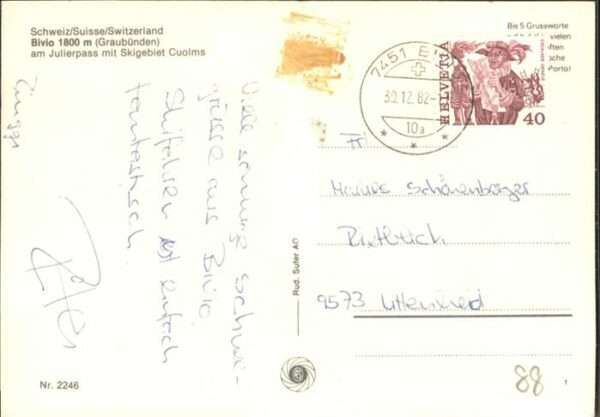 Schweiz/Suisse/Switzerland
Bivio 1800 m (Graubünden)
am Julierpass mit Skigebiet Cuolms
Bis 5 Grussworte
vielen
ften
sche
Porto!
7451 B
30.12.82
10a
HELVETIA
40
Viele sonnige Schnee-
grüsse aus Bivio.
Skifahren ist einfach
fantastisch.
Frl
Schönenberger
9573 Littenheid
Rud. Suter AG
Nr. 2246
1
88